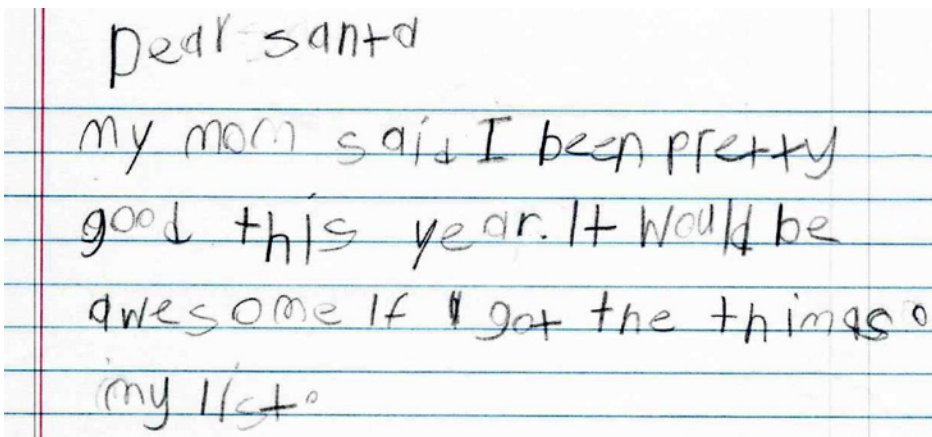 Dear santa
my mom said I been pretty
good this year. It Would be
awesome If I got the things o
my list.